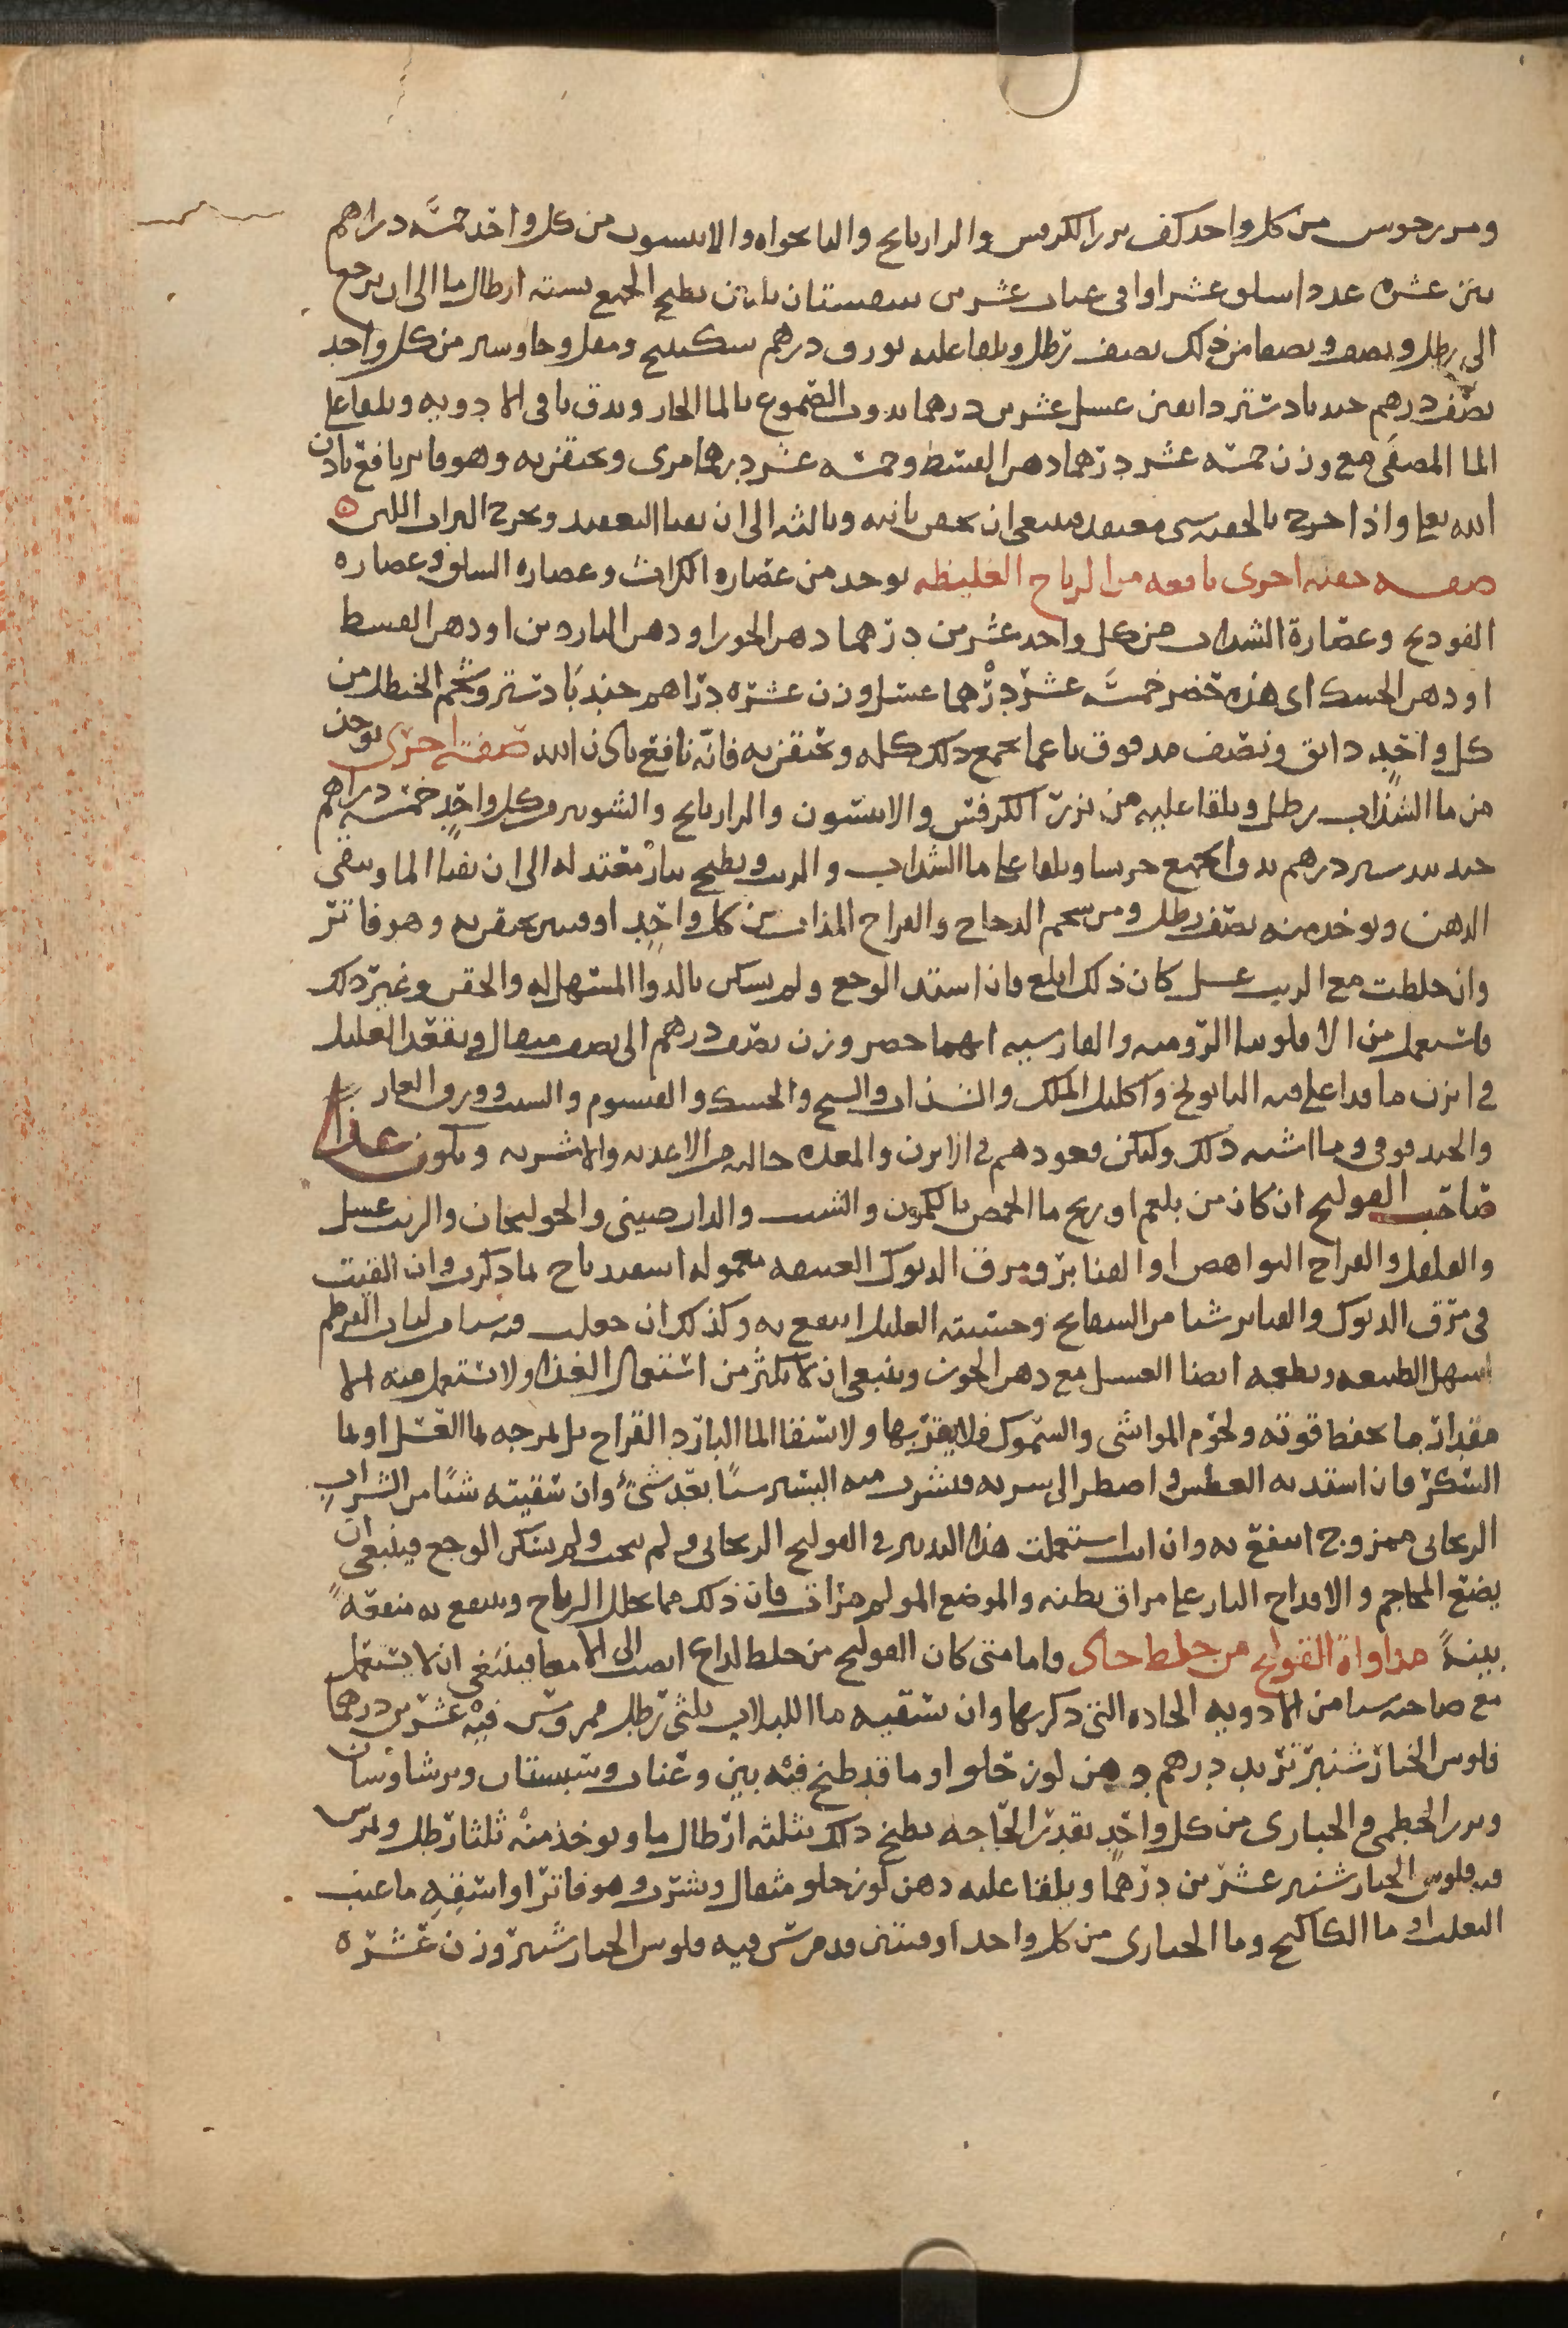 ومرزنجوش من كل واحد كف بزر الكرفس والرازيانج والنانخواه والانيسون من كل واحد خمسه دراهم
تين عشره عدد اسلق عشر اواقى عناب عشرين سبستان ثلثين يطبخ الجميع بسته ارطال ما الى ان يرجع
الى رطل ونصف ويصفا من ذلك نصف رطل ويلقا عليه بورق درهم سكبينج ومقل وجاوشير من كل واحد
نصف درهم جندبادستر دانقين عسل عشرين درهما يذوب الصموغ بالما الحار ويدق باقى الادويه ويلقا على
الما المصفى مع وزن خمسه عشر درهما دهن القسط وخمسه عشر درهما مرى ويحتقن به وهو فاتر نافع باذن
الله تعلى واذا خرج بالحقنه شى منعقد فينبغى ان يحقن ثانيه وثالثه الى ان يفنا المنعقد ويخرج البراز اللين ه
صفه حقنه اخرى نافعه من الرياح الغليظه يوخذ من عصاره الكراث وعصاره السلق وعصاره
الفودنج وعصارة الشذاب من كل واحد عشرين درهما دهن الجوز او دهن الناردين او دهن القسط
او دهن الحسك اى هذه حضر خمسه عشر درهما عسل وزن عشره دراهم جندبادستر وشحم الحنظل من
كل واحد دانق ونصف مدقوق ناعما يجمع ذلك كله ويحتقن به فانه نافع باذن الله صفه اخرى يوخذ
من ما الشذاب رطل ويلقا عليه من بزر الكرفس والانيسون والرازيانج والشونيز من كل واحد خمسه دراهم
جندبيدستر درهم يدق الجميع جريشا ويلقا على ما الشذاب والزيت ويطبخ بنار معتدله الى ان يفنا الما ويبقى
الدهن ويوخذ منه نصف رطل ومن شحم الدجاج والفراخ المذاب من كل واحد اوقيتين يحتقن به وهو فاتر
وان خلطت مع الزيت عسل كان ذلك ابلغ فان اشتد الوجع ولم يسكن بالدوا المسهل له والحقن وغير ذلك
فاستعمل من الافلونيا الروميه والفارسيه ايهما حضر وزن نصف درهم الى نصف مثقال ويقعد العليل
فى ابزن ما قد اغلى فيه البابونج واكليل الملك والشذاب والشيح والحسك والقيسوم والشبت وورق الغار
والحندقوقى وما اشبه ذلك وليكن قعودهم فى الابزن والمعده خاليه من الاغديه والاشربه ويكون غذا
صاحب القولنج ان كان من بلغم او ريح ما الحمص بالكمون والشبت والدارصينى والخولنجان والزيت عسل
والفلفل والفراخ النواهض او القنابر ومرق الديوك العتيقه معموله اسفيدباج بما ذكرت وان القيت
فى مرق الديوك والقنابر شيا من البسفايج وحسيته العليل انتفع به وكذلك ان جعلت فيه شيا من لباب القرطم
اسهل الطبيعه ويطعمه ايضا العسل مع دهن الجوز وينبغى ان لا يكثر من استعمال الغذا ولا يستعمل منه الا
مقدار ما يحفظ قوته ولحوم المواشى والسموك فلا يقربها ولا يسقا الما البارد القراح بل يمزجه بما العسل او بما
السكر فان اشتد به العطش واضطر الى شربه فيشرب منه اليسير شيًا بعد شىء وان سقيته شيًا من الشراب
الريحانى ممزوج انتفع به وان انت استعملت هذا التدبير فى القولنج الريحانى ولم ينحب ولم يسكن الوجع فينبغى ان
يضع المحاجم والاقداح النار على مراق بطنه والموضع المولم مرات فان ذلك مما يحلل الرياح وينتفع به منفعةً
بينةً مداواة القولنج من خلط حاد واما متى كان القولنج من خلط لداع انصب الى الامعا فينبغى ان لا يستعمل
مع صاحبه شيا من الادويه الحاده التى ذكرتها وان تسقيه ما اللبلاب ثلثى رطل ممروس فيه عشرين درهما
فلوس الخيارشنبر تربد درهم دهن لوز حلو او ما قد طبخ فيه تين وعناب وسبستان وبرشاوشان
وبزر الخطمى والخبازى من كل واحد بقدر الحاجه يطبخ ذلك بثلثه ارطال ما ويوخذ منه ثلثا رطل ويمرس
فيه فلوس الخيارشنبر عشرين درهمًا ويلقا عليه دهن لوز حلو مثقال ويشرب وهو فاترًا او اسقِهِ ما عنب
الثعلب او ما الكاكنج وما الخبازى من كل واحد اوقيتين قد مرس فيه فلوس الخيارشنبر وزن عشره